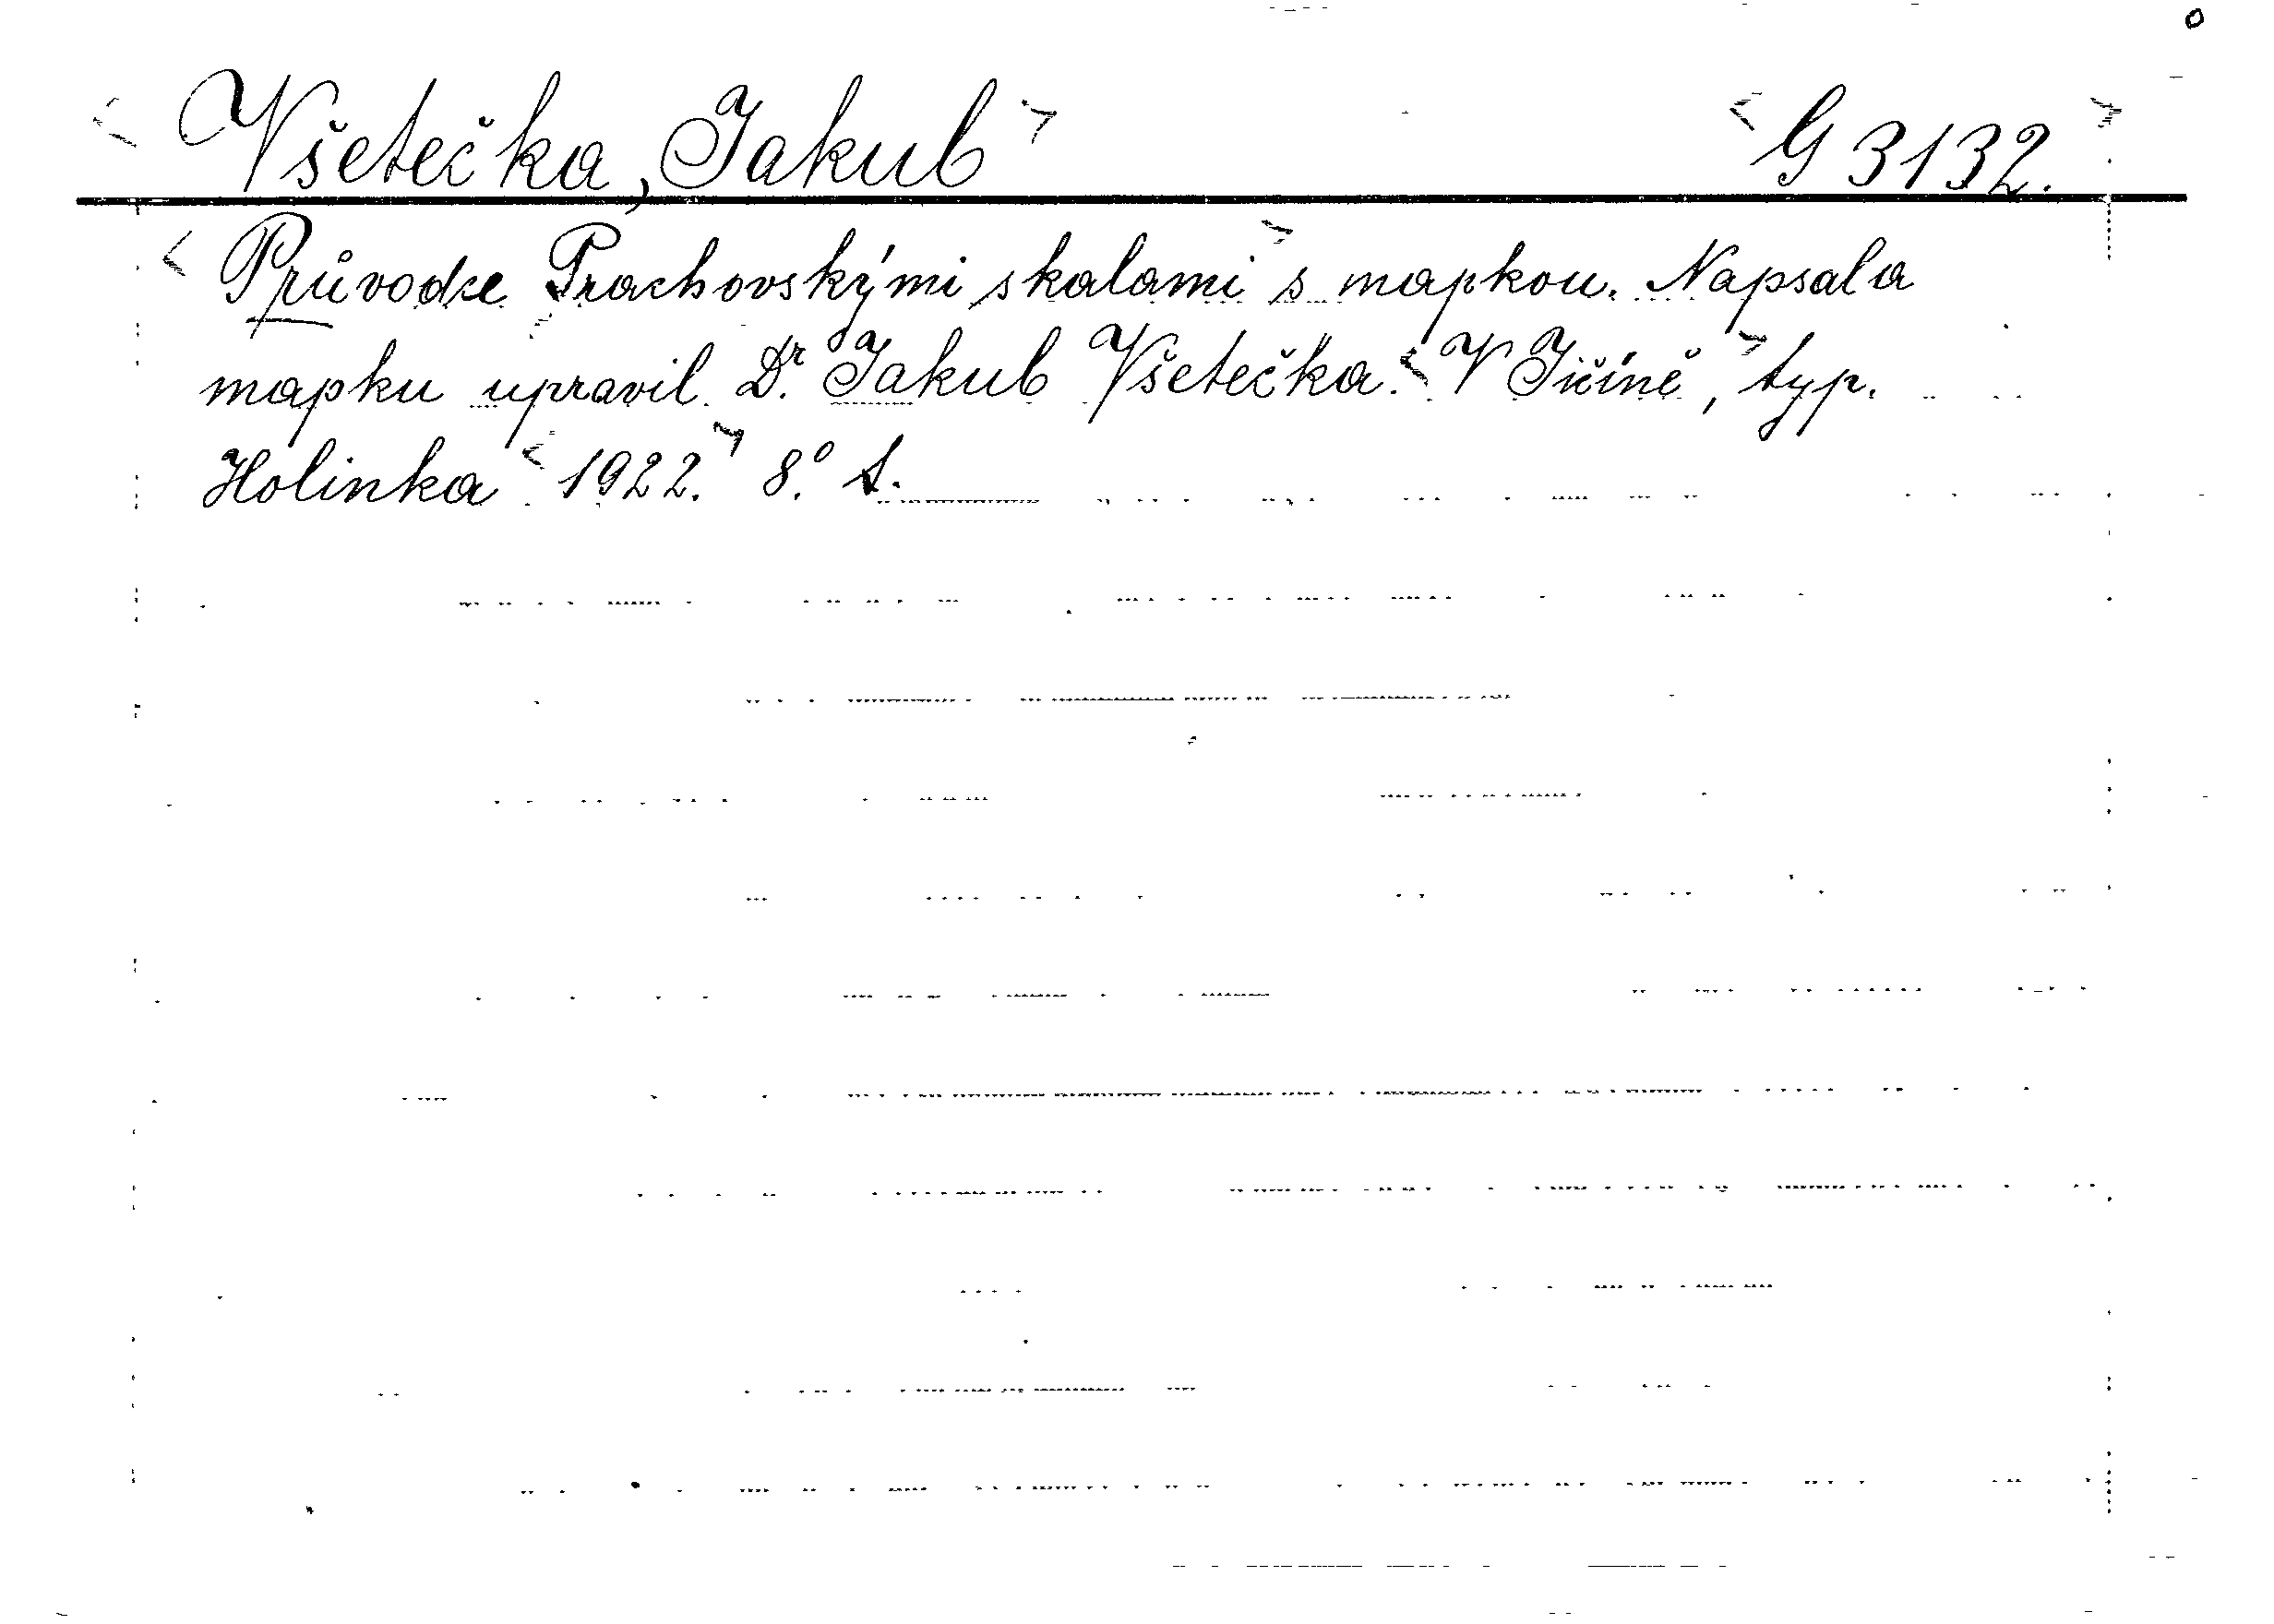 <Všetečka, Jakub> <G 3132.>
<Průvodce Prachovskými skalami> s mapkou. Napsal a
mapku upravil Dr. Jakub Všetečka. <V Jičíně,> typ.
Holinka <1922.> 8.º